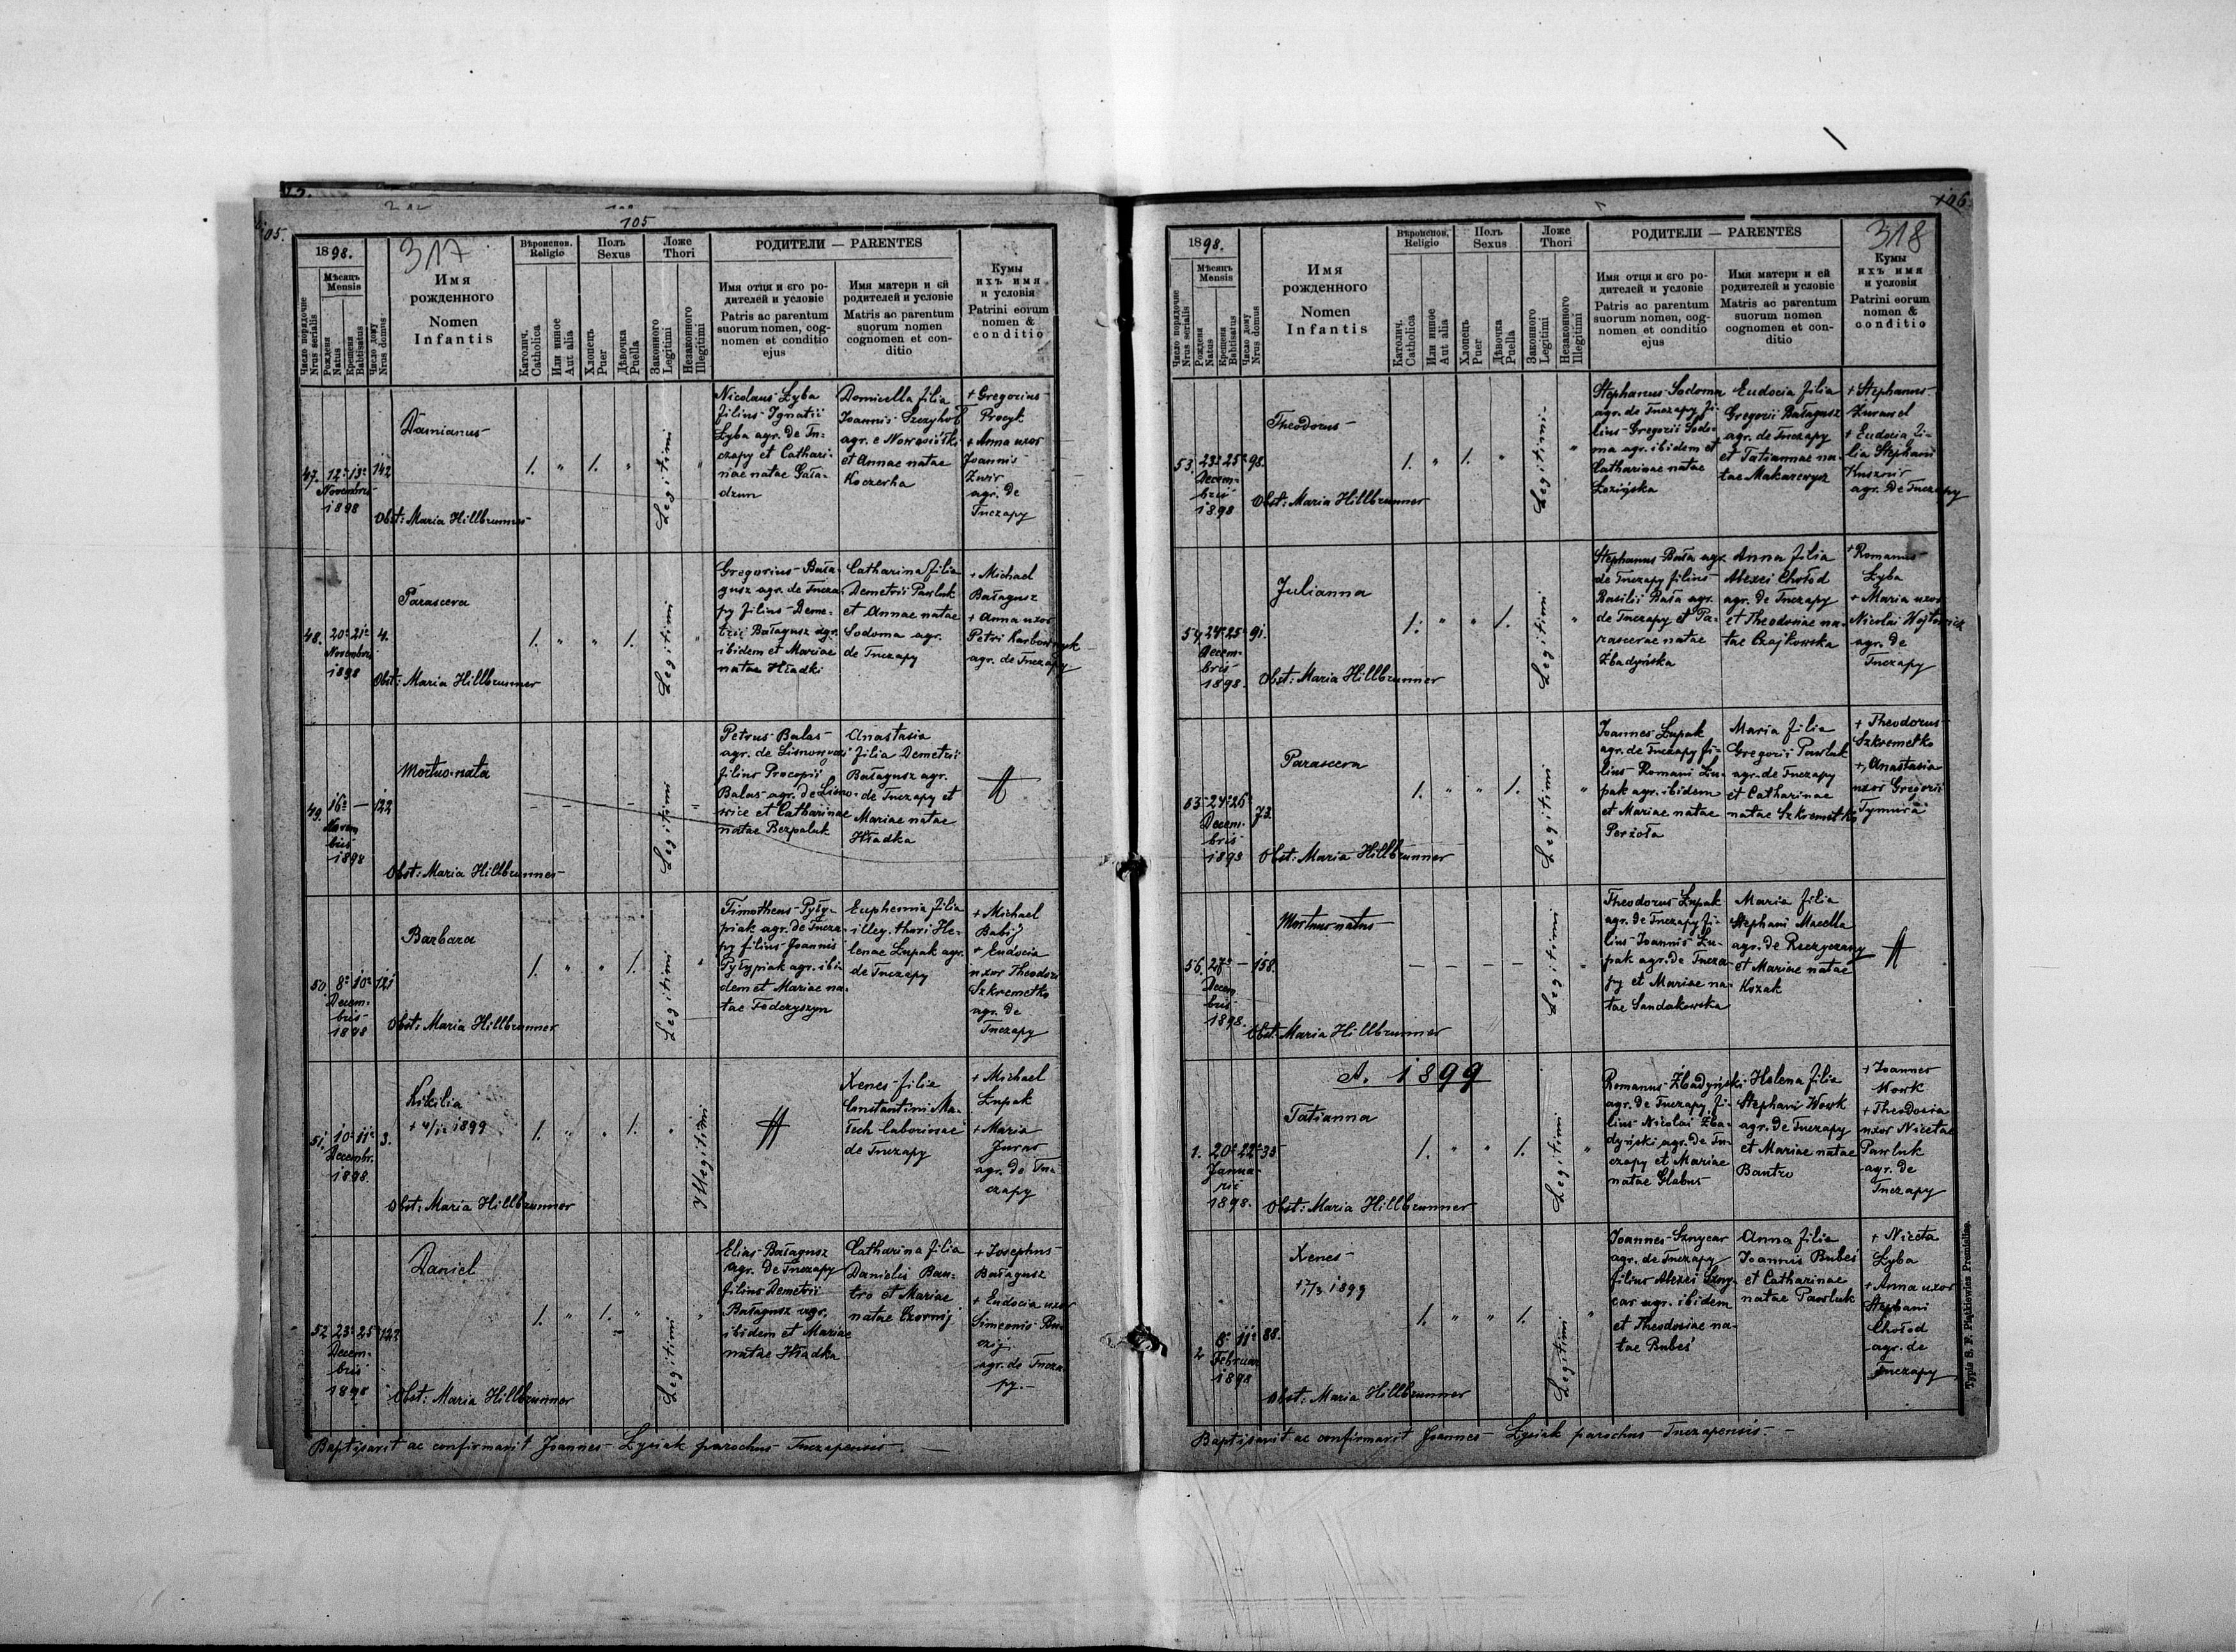 105
105.
1898.
317
Мѣсяць
Mensis
Число порядочне
Nrus serialis
Рожденя
Natus
Крещеня
Babtisatus
Число дому
Nrus domus
Имя
рожденного
Nomen
Infantis
Вѣроиспов.
Religio
Католич.
Catholica
Или инное
Aut alia
Полъ
Sexus
Хлопець
Puer
Дѣвочка
Puella
Ложе
Thori
Законного
Legitimi
Незаконного
Illegitimi
РОДИТЕЛИ — PARENTES
Имя отця и єго ро-
дителей и условіе
Patris ac parentum
suorum nomen, cog-
nomen et conditio
ejus
Имя матери и єй
родителей и условіе
Matris ac parentum
suorum nomen
cognomen et con-
ditio
Кумы
ихъ имя
и условія
Patrini eorum
nomen &
conditio
47. 12a 13a 142
Novembris
1898
Damianus
Obst: Maria Hillbrunner
1. " 1. "
Legitimi "
Nicolaus Łyba
filius Ignatii
Łyba agr. de Tu-
czapy et Cathari-
nae natae Gała-
dzun
Domicella filia
Joannis Szczyhoł
agr. e Nowosiółki
et Annae natae
Koczerha
+ Gregorius
Procyk
+ Anna uxor
Joannis
Zwir
agr. de
Tuczapy
48. 20a 21a 4.
Novembris
1898
Parasceva
Obst: Maria Hillbrunner
1. " " 1.
Legitimi "
Gregorius Bała-
gusz agr. de Tucza-
py filius Deme-
trii Bałagusz agr.
ibidem et Mariae
natae Hładki
Catharina filia
Demetrii Pawluk
et Annae natae
Sodoma agr.
de Tuczapy
+ Michael
Bałagusz
+ Anna uxor
Petri Karbownyk
agr. de Tuczapy
49. 16a — 122
Novem
bris
1898
Mortuo-nata
Obst: Maria Hillbrunner
— — — —
Legitimi "
Petrus Balas
agr. de
filius Procopii
Balas agr. de Lisno-
wice et Catharinae
natae Bezpaluk
Anastasia
filia Demetrii
Bałagusz agr.
de Tuczapy et
Mariae natae
Hładka
50. 8a 10a 121
Decem-
bris
1898
Barbara
Obst: Maria Hillbrunner
1. " " 1.
Legitimi "
Timotheus Pyły-
piak agr. de Tucza-
py filius Joannis
Pyłypiak agr. ibi-
dem et Mariae na-
tae Fedczyszyn
Euphemia filia
illeg. thori He-
lenae Łupak agr.
de Tuczapy
+ Michael
Babij
+ Eudocia
uxor Theodori
Szkremetko
agr. de
Tuczapy
51. 10a 11a 3.
Decembr.
1898.
Kikilia
1899
Obst: Maria Hillbrunner
1. " " 1.
" Illegitimi
Xenes filia
Constantini Ma-
laboriosae
de Tuczapy
+ Michael
Łupak
+ Maria
Juras
agr. de Tu-
czapy
52 23a 25a 122
Decem-
bris
1898
Daniel
Obst: Maria Hillbrunner
1. " 1. "
Legitimi "
Elias Bałagusz
agr. de Tuczapy
filius Demetrii
Bałagusz agr.
ibidem et Mariae
natae Hładka
Catharina filia
Danielis Bau-
tro et Mariae
natae Czornij
+ Josephus
Bałagusz
+ Eudocia uxor
Simeonis
agr. de Tucza-
py.—
Baptisavit ac confirmavit Joannes Łysiak parochus Tuczapensis.—
106.
1898.
318
Мѣсяць
Mensis
Число порядочне
Nrus serialis
Рожденя
Natus
Крещеня
Babtisatus
Число дому
Nrus domus
Имя
рожденного
Nomen
Infantis
Вѣроиспов.
Religio
Католич.
Catholica
Или инное
Aut alia
Полъ
Sexus
Хлопець
Puer
Дѣвочка
Puella
Ложе
Thori
Законного
Legitimi
Незаконного
Illegitimi
РОДИТЕЛИ — PARENTES
Имя отця и єго ро-
дителей и условіе
Patris ac parentum
suorum nomen, cog-
nomen et conditio
ejus
Имя матери и єй
родителей и условіе
Matris ac parentum
suorum nomen
cognomen et con-
ditio
Кумы
ихъ имя
и условія
Patrini eorum
nomen &
conditio
53. 23a 25a 98.
Decem-
bris
1898
Theodorus
Obst: Maria Hillbrunner
1. " 1. "
Legitimi "
Stephanus Sodoma
agr. de Tuczapy fi-
lius Gregorii Sodo-
ma agr. ibidem et
Catharinae natae
Łozińska
Eudocia filia
Gregorii Bałagusz
agr. de Tuczapy
et Tatiannae na-
tae Makarewycz
+ Stephanus
Żurawel
+ Eudocia fi-
lia Stephani
Kusznir
agr. de Tuczapy
54. 24a 25a 91.
Decem-
bris
1898.
Julianna
Obst: Maria Hillbrunner
1. " " 1.
Legitimi "
Stephanus Bała agr.
de Tuczapy filius
Basilii Bała agr.
de Tuczapy et Pa-
rascevae natae
Żbadyńska
Anna filia
Alexei Chołod
agr. de Tuczapy
et Theodosiae na-
tae Czajkowska
+ Romanus
Łyba
+ Maria uxor
Nicolai Wojtowicz
agr. de
Tuczapy
24a 26a 73.
Decem-
bris
1898
Parasceva
Obst: Maria Hillbrunner
1. " " 1.
Legitimi "
Joannes Łupak
agr. de Tuczapy fi-
lius Romani Łu-
pak agr. ibidem
et Mariae natae
Perżoła
Maria filia
Gregorii Pawluk
agr. de Tuczapy
et Catharinae
natae Szkremetko
+ Theodorus
Szkremetko
+ Anastasia
uxor Gregorii
Tymura
56. 27a — 158.
Decem
bris
1898.
Mortuus natus
Obst: Maria Hillbrunner
— — — —
Legitimi "
Theodorus Łupak
agr. de Tuczapy fi-
lius Joannis Łu-
pak agr. de Tucza-
py et Mariae na-
tae Sandakowska
Maria filia
Stephani Macella
agr. de Rzeczyczany
et Mariae natae
Kozak
A. 1899
1. 20a 22a 35
Janua-
rii
1898.
Tatianna
Obst: Maria Hillbrunner
1. " " 1.
Legitimi "
Romanus Żbadyński
agr. de Tuczapy fi-
lius Nicolai Żba-
dyński agr. de Tu-
czapy et Mariae
natae Glabus
Helena filia
Stephani Wowk
agr. de Tuczapy
et Mariae natae
Bautro
+ Joannes
Wowk
+ Theodosia
uxor Nicetae
Pawluk
agr. de
Tuczapy
2 8a 11a 88.
Februar
1898
Xenes
+ 17/3 1899
Obst: Maria Hillbrunner
1. " " 1.
Legitimi "
Joannes Sznycar
agr. de Tuczapy
filius Alexei Szny-
car agr. ibidem
et Theodosiae na-
tae Bubes
Anna filia
Joannis Bubes
et Catharinae
natae Pawluk
+ Niceta
Łyba
+ Anna uxor
Stephani
Chołod
agr. de
Tuczapy
Typis S. F. Piątkiewicz Premisliae.
Baptisavit ac confirmavit Joannes Łysiak parochus Tuczapensis.—